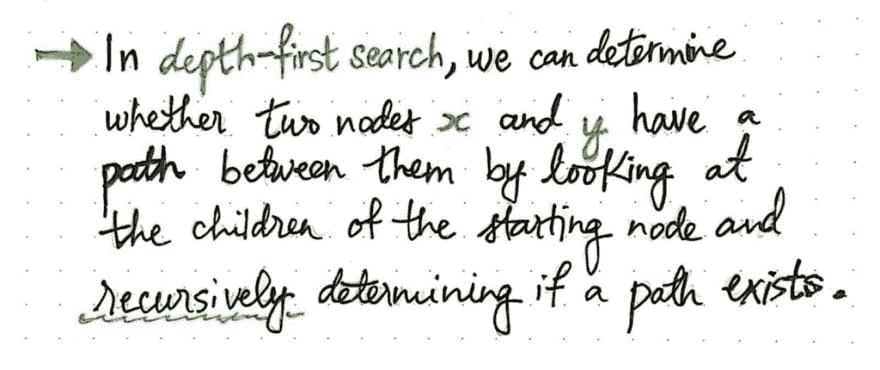 → In depth-first search, we can determine
whether two nodes x and y have a
path between them by looking at
the children of the starting node and
recursively determining if a path exists.